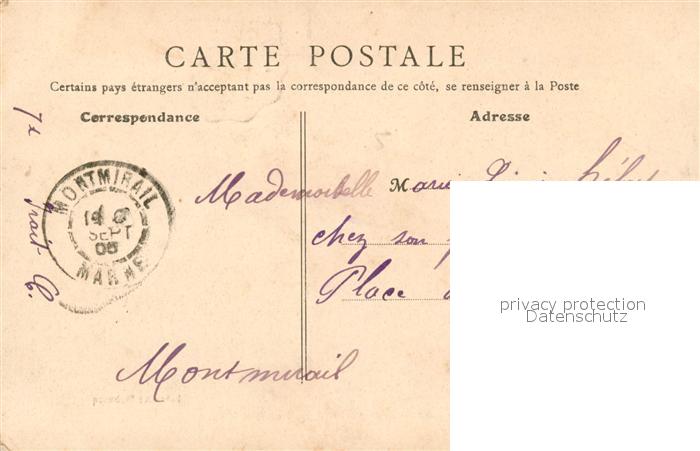 CARTE POSTALE
Certains pays étrangers n'acceptant pas la correspondance de ce côté, se renseigner à la Poste
Correspondance
Adresse
MONTMIRAIL
SEPT
MARNE
Mademoiselle Marie
chez son
Place
Montmirail
privacy protection
Datenschutz